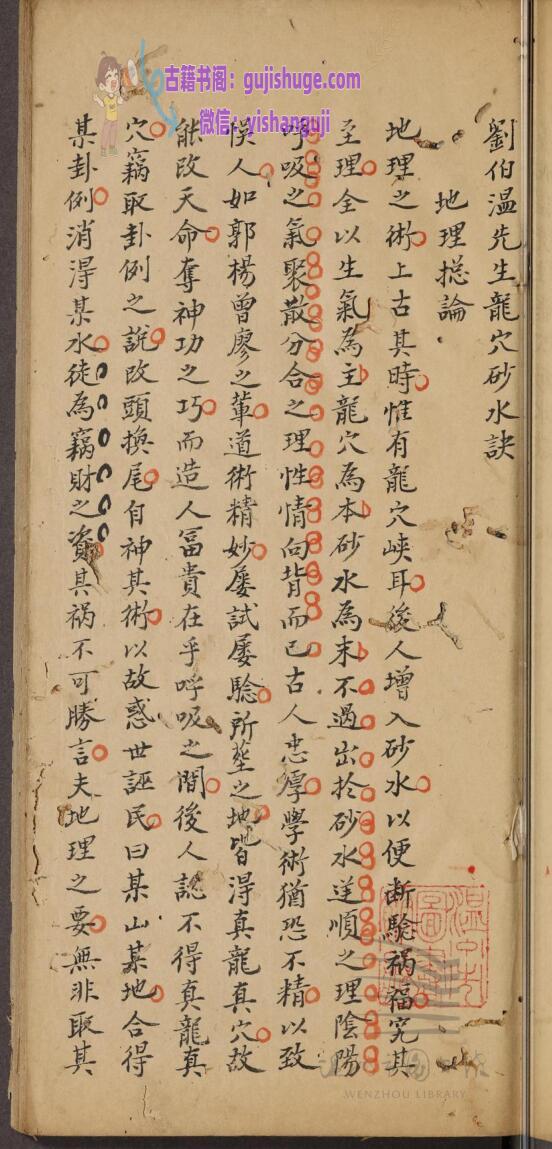 劉伯温先生龍穴砂水訣
地理總論
地理之術上古其時惟有龍穴峽耳後人增入砂水以便斷驗禍福究其
至理全以生氣為主龍穴為本砂水為末不過出於砂水逆順之理陰陽
呼吸之氣聚散分合之理性情向背而已古人忠厚學術猶恐不精以致
悮人如郭楊曾廖之輩道術精妙屡試屡騐所塟之地皆淂真龍真穴故
能改天命奪神功之巧而造人冨貴在乎呼吸之間後人認不得真龍真
穴竊取卦例之說改頭換尾自神其術以故惑世誣民曰某山某地合得
某卦例消淂某水徒為竊財之資其禍不可勝言夫地理之要無非取其
古籍书阁：gujishuge.com
微信：yishanguji
WENZHOU LIBRARY